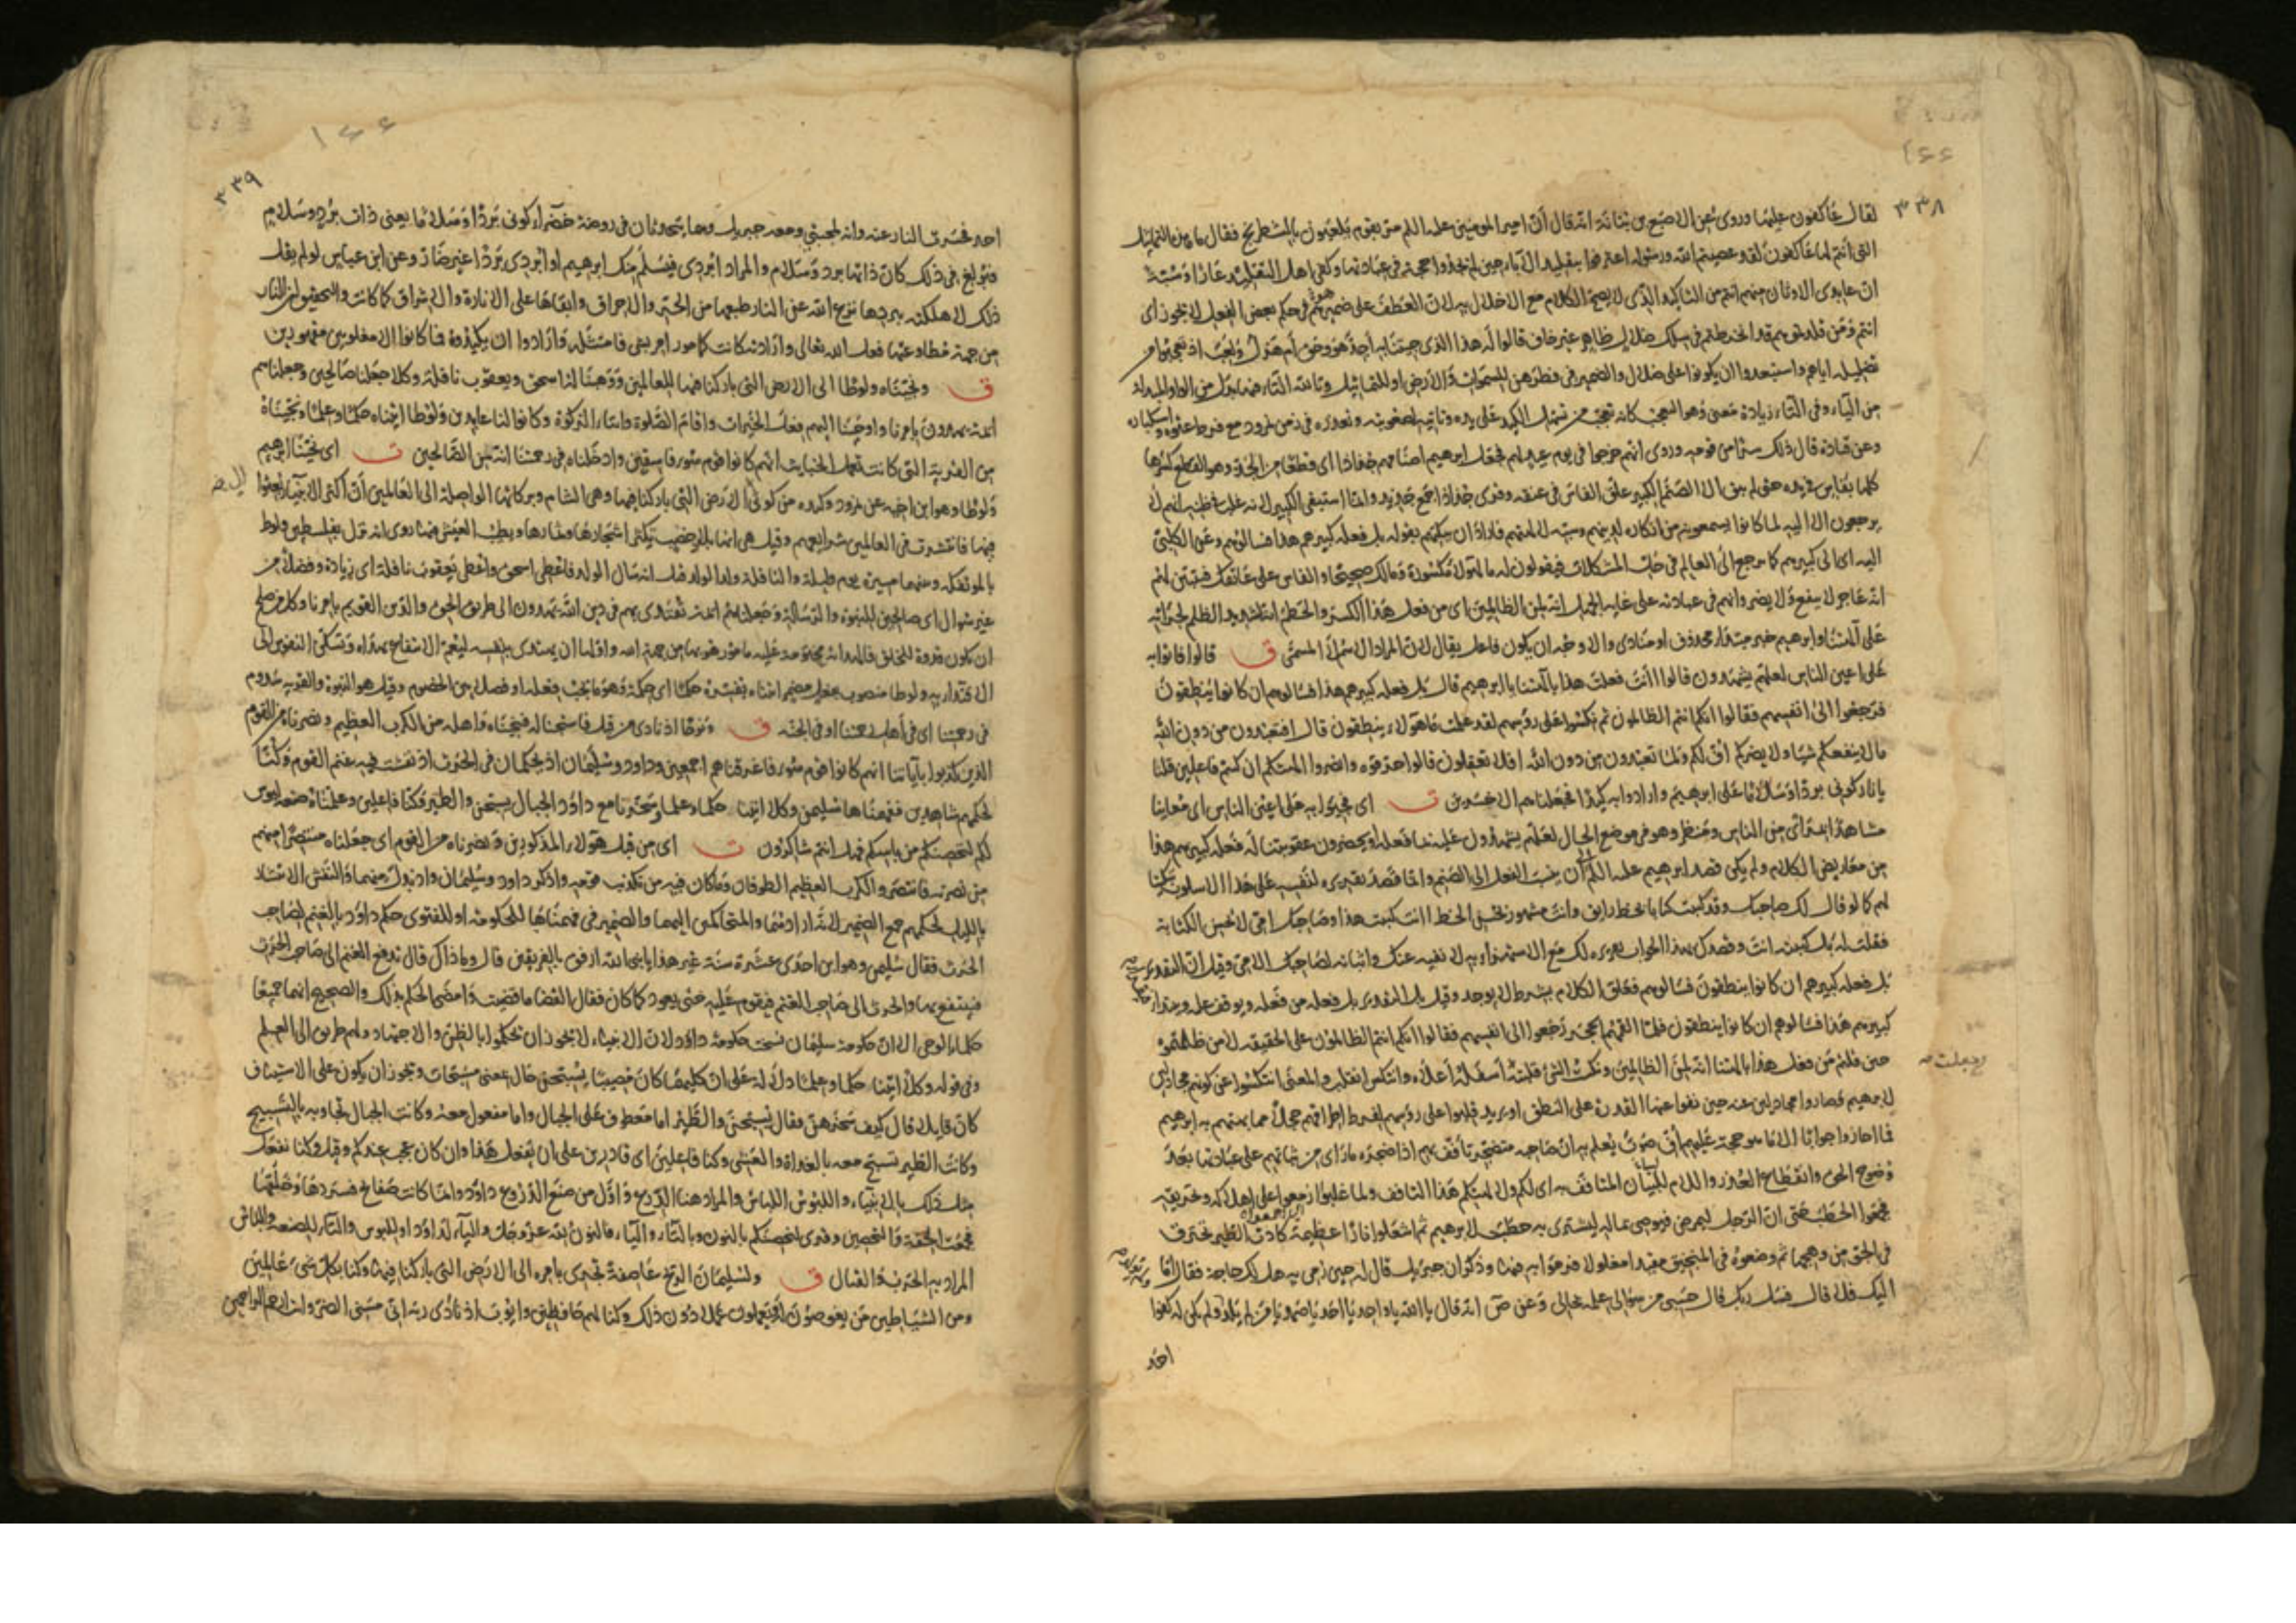 ٣٣٨
لقال عاكفون عليها وروى عن الاصبغ بن نباتة انه قال ان امير المؤمنين عليه السلم مر بقوم يلعبون بالشطرنج فقال ما هذه التماثيل
التى انتم لها عاكفون لقد عصيتم الله ورسوله اعترفوا بتقليد الآباء حين لم يجدوا حجة فى عبادتها وكفى اهل التقليد عارا وسبّة
ان عابدى الاوثان منهم انتم من التاكيد الذى لا يصح الكلام مع الاخلال به لان العطف على ضمير هو فى حكم بعض الفعل لا يجوز اى
انتم ومن قلدتموهم قد انخرطتم فى سلك ضلال ظاهر غير خاف قالوا له هذا الذى جئتنا به أجد هو وحق أم هزل ولعب اذ تعجبوا من
تضليله اياهم واستبعدوا ان يكونوا على ضلال والضمير فى فطرهن للسموات والارض او للتماثيل وتالله التاء فيها بدل من الواو المبدلة
من الباء وفى التاء زيادة معنى وهو التعجب كانه تعجب من تسهل الكيد على يده وتأتيه لصعوبته وتعذره فى زمن نمرود مع فرط عتوه واستكباره
وعن قتادة قال ذلك سرا من قومه وروى انهم خرجوا فى يوم عيد لهم فجعل ابرهيم اصنامهم جذاذا اى قطعا من الجذ وهو القطع كسرها
كلها بفأس فى يده حتى لم يبق الا الصنم الكبير علق الفاس فى عنقه وقرى جذاذا جمع جذيذ وانما استبقى الكبير لانه غلب فى ظنه انهم لا
يرجعون الا اليه لما كانوا يسمعونه من انكاره لدينهم وسبه لالهتهم فاراد ان يبكتهم بقوله بل فعله كبيرهم هذا فسالوهم وعن الكلبى
اليه اى الى كبيرهم كما يرجع الى العالم فى حل المشكلات فيقولون له ما لهؤلاء مكسورة ومالك صحيحا والفاس على عاتقك فيتبين لهم
انه عاجز لا ينفع ولا يضر وانهم فى عبادته على غاية الجهل انه لمن الظالمين اى من فعل هذا الكسر والحطم لشديد الظلم لجرأته
على آلهتنا وابرهيم خبر مبتداء محذوف او منادى والاوجه ان يكون فاعل يقال لان المراد الاسم لا المسمى ق قالوا فاتوا به
على اعين الناس لعلهم يشهدون قالوا اانت فعلت هذا بآلهتنا يا ابرهيم قال بل فعله كبيرهم هذا فسالوهم ان كانوا ينطقون
فرجعوا الى انفسهم فقالوا انكم انتم الظالمون ثم نكسوا على رؤسهم لقد علمت ما هؤلاء ينطقون قال افتعبدون من دون الله
مالا ينفعكم شيئا ولا يضركم اف لكم ولما تعبدون من دون الله افلا تعقلون قالوا حرقوه وانصروا الهتكم ان كنتم فاعلين قلنا
يا نار كونى بردا وسلاما على ابرهيم وارادوا به كيدا فجعلناهم الاخسرين ت اى فجيؤا به على اعين الناس اى معاينا
مشاهدا بمرأى من الناس ومنظر وهو فى موضع الحال لعلهم يشهدون عليه بما فعله او يحضرون عقوبتنا له فعله كبيرهم هذا
من معاريض الكلام ولم يكن قصد ابرهيم عليه السلم ان ينسب الفعل الى الصنم وانما قصد تقريره لنفسه على هذا الاسلوب تبكيتا
لهم كما لو قال لك صاحبك وقد كتبت كتابا بخط رايق وانت مشهور بحسن الخط اانت كتبت هذا وصاحبك امى لا يحسن الكتابة
فقلت له بل كتبته انت وقصدك بهذا الجواب تقريره لك مع الاستهزاء به لا نفيه عنك واثباته لصاحبك الامى وقيل ان التقدير
بل فعله كبيرهم ان كانوا ينطقون فسالوهم فعلق الكلام بشرط لا يوجد وقيل بل التقدير بل فعله من فعله ويوقف عليه ويبتدا
كبيرهم هذا فسالوهم ان كانوا ينطقون فلما القمهم الحجر رجعوا الى انفسهم فقالوا انكم انتم الظالمون على الحقيقة لا من ظلمتموه
حين قلتم من فعل هذا بالهتنا انه لمن الظالمين ونكست الشئ قلبته أسفله أعلاه وانتكس انقلب والمعنى انتكسوا عن كونهم مجادلين
وجعلت
لابرهيم فصاروا مجادلين عنه حين نفوا عنها القدرة على النطق او يريد قلبوا على رؤسهم لفرط اطراقهم خجلا مما بهتهم به ابرهيم
فما احاروا جوابا الا ما هو حجة عليهم أف صوت يعلم به ان صاحبه متضجر تأفف بهم اذ اضجره ما رأى من ثباتهم على عبادتها بعد
وضوح الحق وانقطاع العذر واللام لبيان المتافف به اى لكم ولالهتكم هذا التافف ولما غلبوا ازمعوا على اهلاكه وتحريقه
فجمعوا الحطب حتى ان الرجل ليمرض فيوصى بماله ليشترى به حطب لابرهيم ثم اشعلوا نارا عظيمة كادت الطير تحترق
فى الجو من وهجها ثم وضعوه فى المنجنيق مقيدا مغلولا فرموا به فيها وذكر ان جبريل قال له حين رمى به هل لك حاجة فقال اما
اليك فلا قال فسل ربك قال حسبى من سؤالى علمه بحالى وعن ص انه قال يا الله يا واحد يا احد يا صمد يا من لم يلد ولم يولد ولم يكن له كفوا
احد
٣٣٩
احد فحسرت النار عنه وانه لمحتبى ومعه جبريل وهما يتحدثان فى روضة خضراء كونى بردا وسلاما يعنى ذات برد وسلام
فبولغ فى ذلك كان ذاتها برد وسلام والمراد ابردى فيسلم منك ابرهيم او ابردى بردا غير ضار وعن ابن عباس لو لم يقل
ذلك لاهلكته ببردها نزع الله عن النار طبعها من الحر والاحراق وابقاها على الانارة والاشراق كما كانت
من جهة مطاوعتها فعل الله تعالى وارادته كانت كمامور امر بشئ فامتثله وارادوا ان يكيدوه فما كانوا الا مغلوبين مقهورين
ق ونجيناه ولوطا الى الارض التى باركنا فيها للعالمين ووهبنا له اسحق ويعقوب نافلة وكلا جعلنا صالحين وجعلناهم
ائمة يهدون بامرنا واوحينا اليهم فعل الخيرات واقام الصلوة وايتاء الزكوة وكانوا لنا عابدين ولوطا اتيناه حكما وعلما ونجيناه
من القرية التى كانت تعمل الخبايث انهم كانوا قوم سوء فاسقين وادخلناه فى رحمتنا انه من الصالحين ت اى نجينا ابرهيم
ولوطا وهو ابن اخيه عن نمرود وكيده من كوثى الى الارض التى باركنا فيها وهى الشام وبركاتها الواصلة الى العالمين ان اكثر الانبياء بعثوا
فيها فانتشرت فى العالمين شرايعهم وقيل هى انها بلاد خصب يكثر اشجارها وثمارها ويطيب العيش فيها روى انه نزل بفلسطين ولوط
بالموتفكة وبينهما مسيرة يوم وليلة والنافلة ولد الولد قيل انه سال الولد فاعطى اسحق واعطى يعقوب نافلة اى زيادة وفضلا من
غير سوال اى صالحين للنبوة والرسالة وجعلناهم ائمة تقتدى بهم فى دين الله يهدون الى طريق الحق والدين القويم بامرنا وكل من صلح
ان يكون قدوة للخلق فالهداية محتومة عليه مامور هو بها من جهة الله واولها ان يهتدى بنفسه ليعم الانتفاع بهداه وتسكن النفوس الى
الاقتداء به ولوطا منصوب بفعل مضمر اتيناه يفسره حكما اى حكمة وهو ما يجب فعله او فصلا بين الخصوم وقيل هو النبوة والقرية سدوم
فى رحمتنا اى فى أهل رحمتنا او فى الجنة ق ونوحا اذ نادى من قبل فاستجبنا له فنجيناه واهله من الكرب العظيم ونصرناه من القوم
الذين كذبوا بآياتنا انهم كانوا قوم سوء فاغرقناهم اجمعين وداود وسليمان اذ يحكمان فى الحرث اذ نفشت فيه غنم القوم وكنا
لحكمهم شاهدين ففهمناها سليمن وكلا اتينا حكما وعلما وسخرنا مع داود الجبال يسبحن والطير وكنا فاعلين وعلمناه صنعة لبوس
لكم لتحصنكم من باسكم فهل انتم شاكرون ت اى من قبل هؤلاء المذكورين ونصرناه من القوم اى جعلناه منتصرا منهم
من نصرته فانتصر والكرب العظيم الطوفان وما كان فيه من تكذيب قومه واذكر داود وسليمان واذ بدل منهما والنفش الانتشار
بالليل لحكمهم جمع الضمير لانه اراد هما والمتحاكمين اليهما والضمير فى ففهمناها للحكومة او للفتوى حكم داود بالغنم لصاحب
الحرث فقال سليمن وهو ابن احدى عشرة سنة غير هذا يا نبى الله ارفق بالفريقين قال وما ذاك قال تدفع الغنم الى صاحب الحرث
فينتفع بها والحرث الى صاحب الغنم فيقوم عليه حتى يعود كما كان فقال القضا ما قضيت وامضى الحكم بذلك والصحيح انهما جميعا
حكما بالوحى الا ان حكومة سليمان نسخت حكومة داود لان الانبياء لا يجوز ان يحكموا بالظن والاجتهاد ولهم طريق الى العلم
وفى قوله وكلا اتينا حكما وعلما دلالة على ان كليهما كان مصيبا يسبحن حال بمعنى مسبحات ويجوز ان يكون على الاستيناف
كان قايلا قال كيف سخرهن فقال يسبحن والطير اما معطوف على الجبال واما مفعول معه وكانت الجبال تجاوبه بالتسبيح
وكانت الطير تسبح معه بالغداة والعشى وكنا فاعلين اى قادرين على ان نفعل هذا وان كان عجبا عندكم وقيل وكنا نفعل
مثل ذلك بالانبياء واللبوس اللباس والمراد هنا الدرع واول من صنع الدروع داود وانما كانت صفائح فسردها وحلقها
فجمعت الخفة والتحصين وقرى لتحصنكم بالنون وبالتاء والياء فالنون لله عز وجل والياء لداود او للبوس والتاء للصنعة والباس
المراد به الحرب والقتال ق ولسليمان الريح عاصفة تجرى بامره الى الارض التى باركنا فيها وكنا بكل شئ عالمين
ومن الشياطين من يغوصون له ويعملون عملا دون ذلك وكنا لهم حافظين وايوب اذ نادى ربه انى مسنى الضر وانت ارحم الراحمين